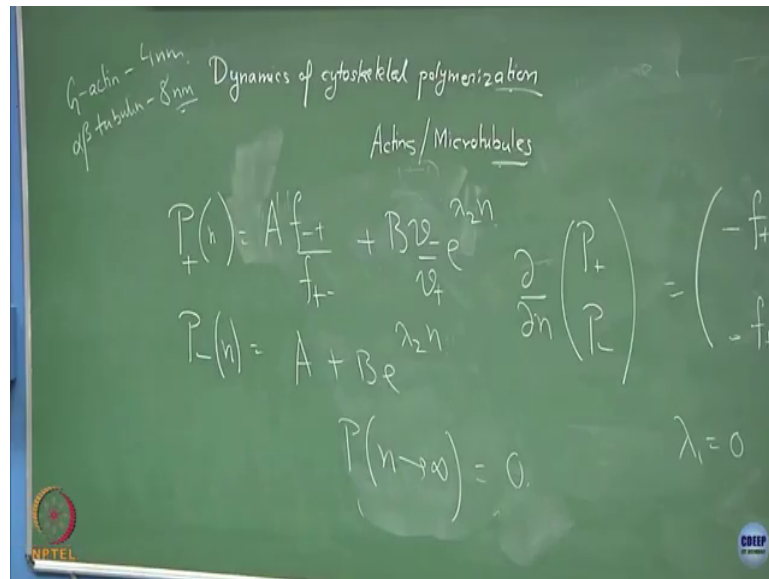 G-actin - 4nm.
αβ tubulin - 8nm
Dynamics of cytoskeletal polymerization
Actins/Microtubules
P₊(n) = A f₋₊/f₊₋ + B v₋/v₊ e^{λ₂n}
P₋(n) = A + B e^{λ₂n}
∂/∂n (P₊ P₋) = (-f₊ -f₊
P(n→∞) = 0.
λ₁ = 0
NPTEL
CDEEP
IIT BOMBAY